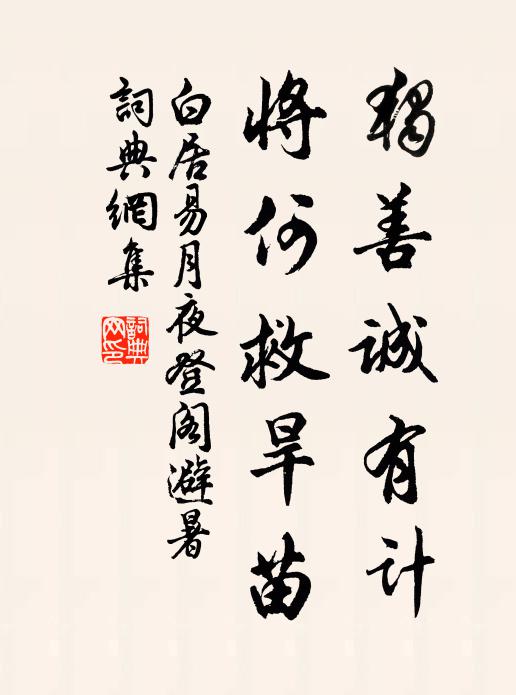 獨善誠有计
將何救旱苗
白居易月夜登閣避暑
詞典網集
詞典
网印